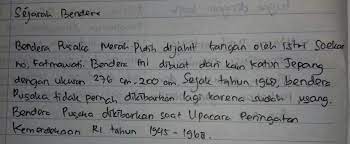 Sejarah Bendera
Bendera Pusaka Merah Putih dijahit tangan oleh istri Soekar
no, Fatmawati. Bendera Ini dibuat dari kain katun Jepang
dengan ukuran 276 cm-200 cm. Sejak tahun 1968, bendera
Pusaka tidak pernah dikibarkan lagi karena sudah usang.
Bendera Pusaka dikibarkan saat Upacara Peringatan
Kemerdekaan RI tahun 1945 - 1968.